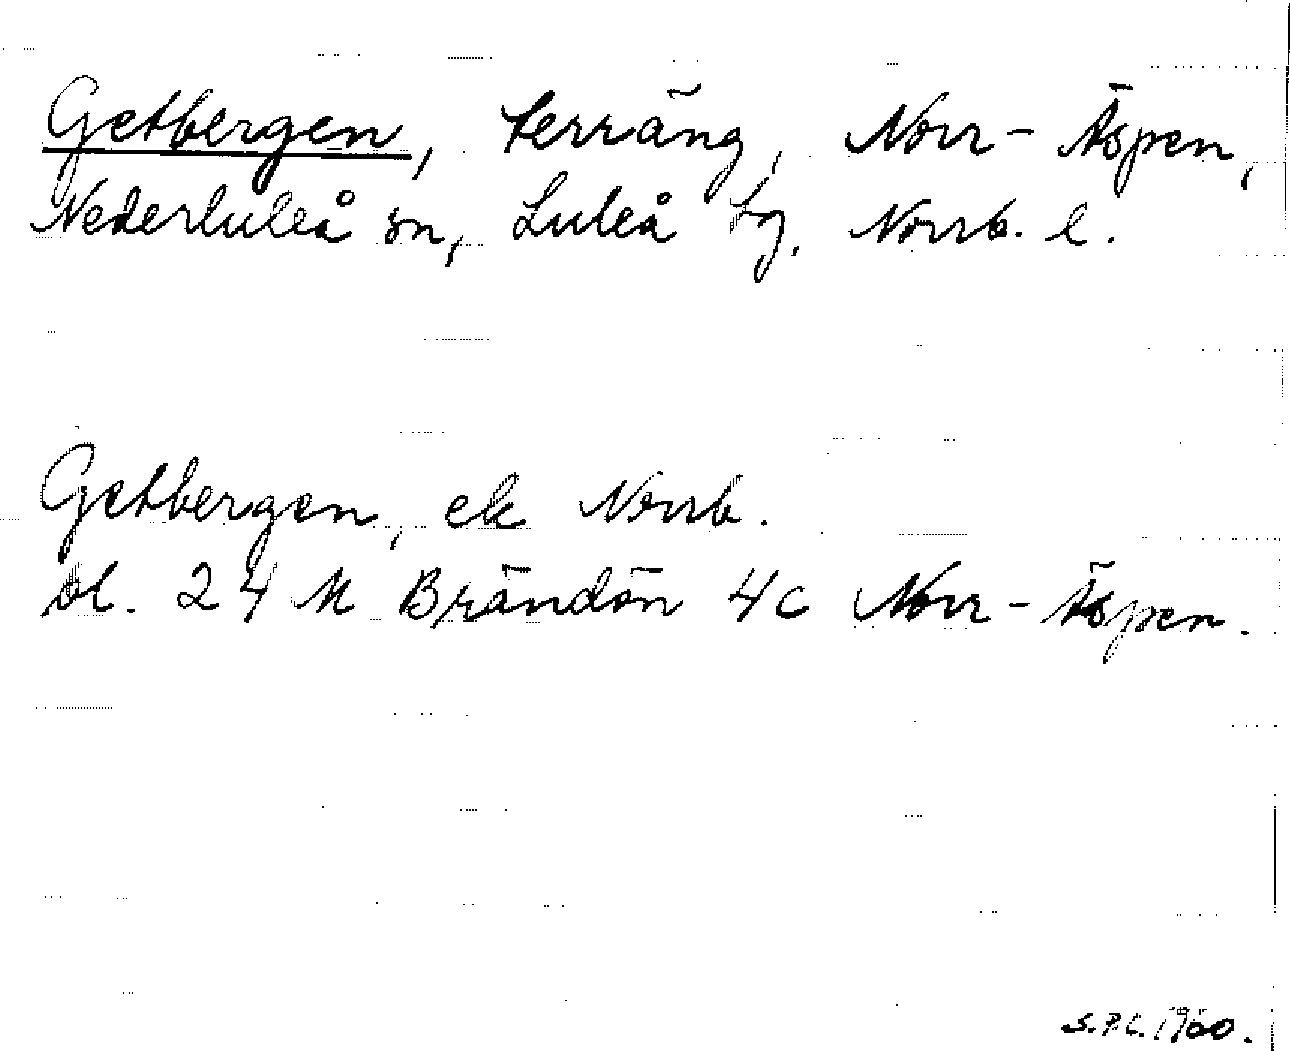 Getbergen, terräng, Norr-Äspen,
Nederluleå sn, Luleå tg, Norrb. l.
Getbergen, ek Norrb.
bl. 24 M Brändön 4c Norr-Äspen.
S.P.L. 1960.